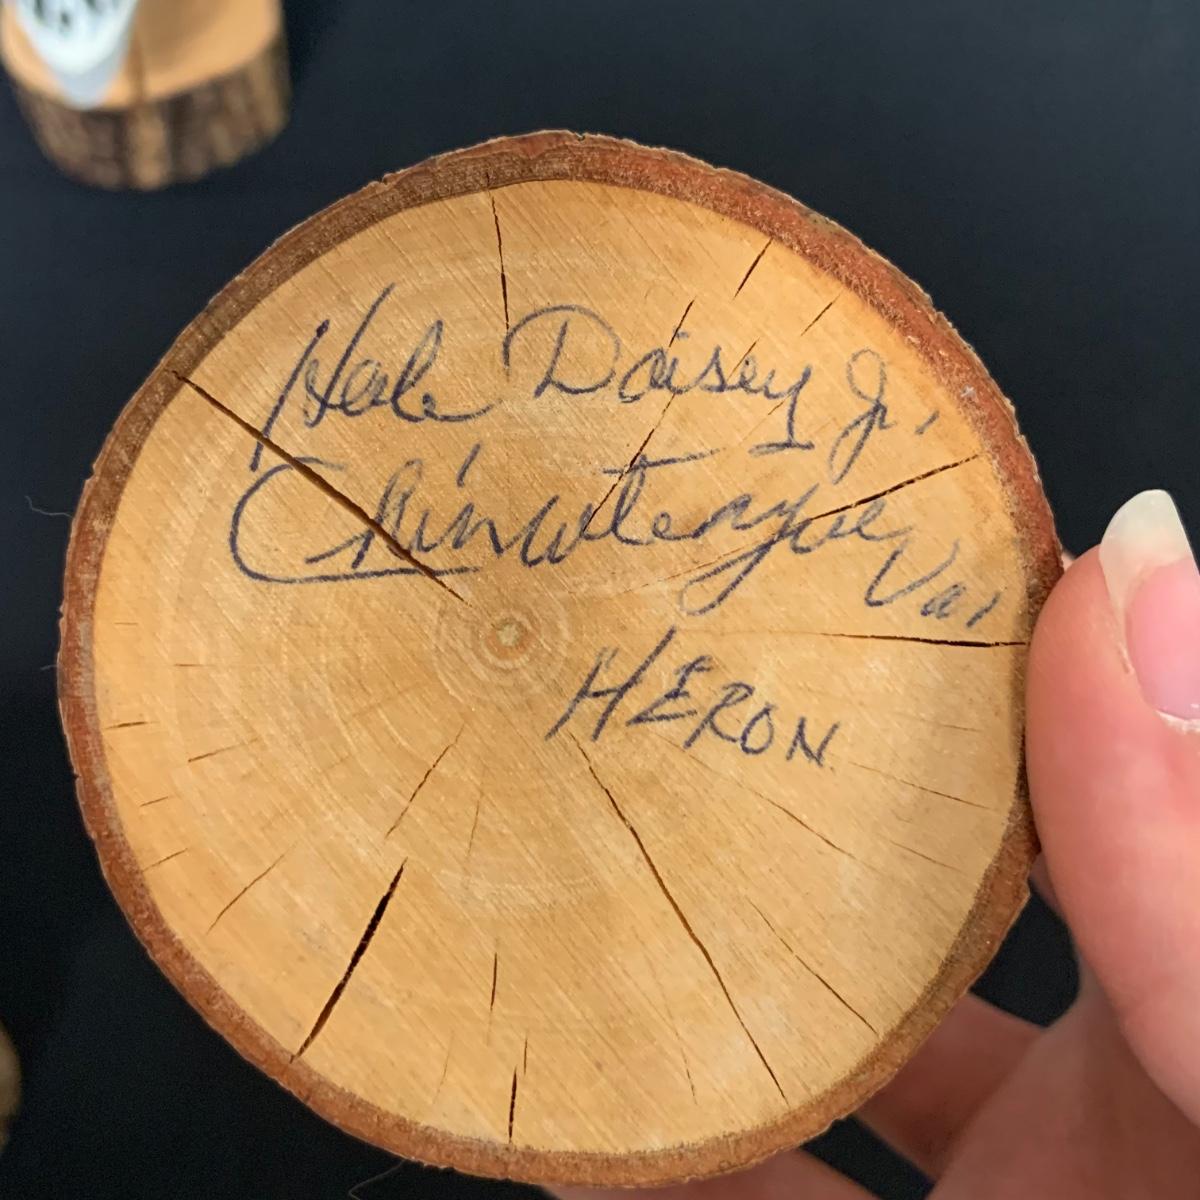 Hale Daisey Jr.
Chincoteague
Va.
HERON